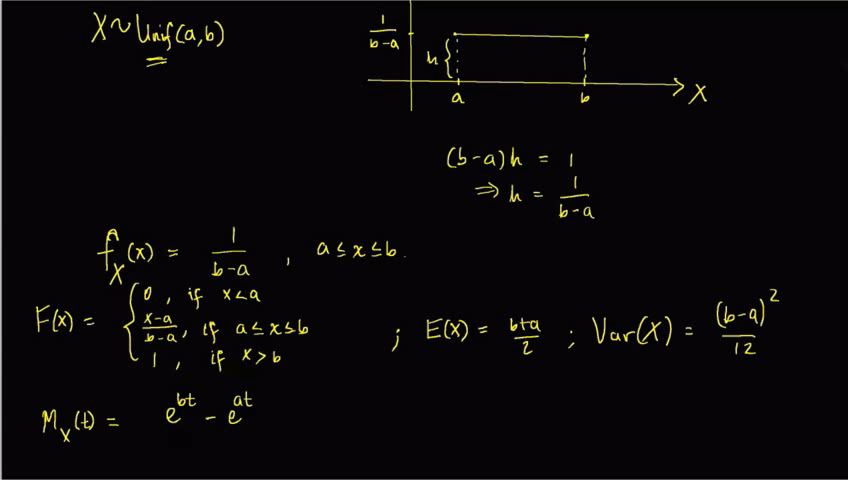 X ~ Unif(a,b)
1/(b-a)
h {
a b X
(b-a)h = 1
⇒ h = 1/(b-a)
f_X(x) = 1/(b-a) , a ≤ x ≤ b.
F(x) = { 0 , if x < a
(x-a)/(b-a) , if a ≤ x ≤ b
1 , if x > b
; E(X) = (b+a)/2 ; Var(X) = (b-a)^2/12
M_X(t) = e^{bt} - e^{at}